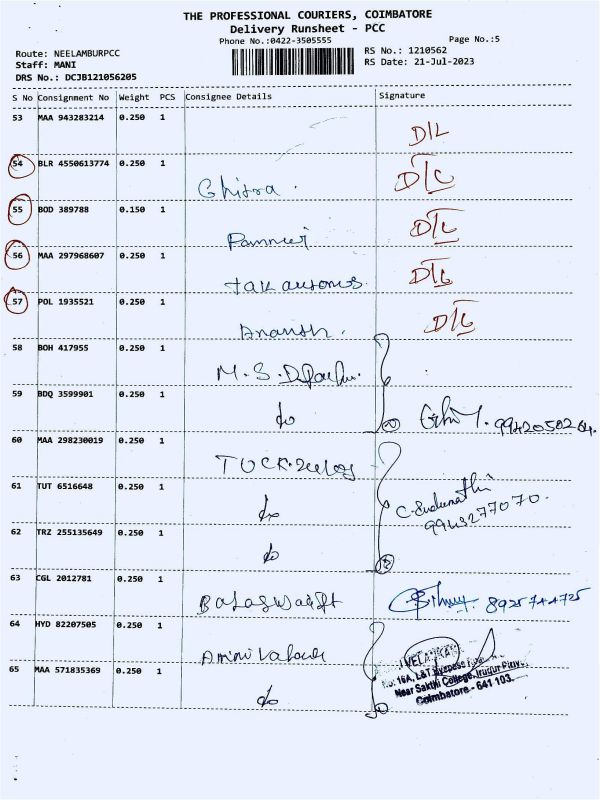 THE PROFESSIONAL COURIERS, COIMBATORE
Delivery Runsheet - PCC
Phone No.:0422-3505555
Page No.:5
Route: NEELAMBURPCC
RS No.: 1210562
Staff: MANI
RS Date: 21-Jul-2023
DRS No.: DCJB121056205
S No Consignment No Weight PCS Consignee Details Signature
53 MAA 943283214 0.250 1 D/L
54 BLR 4550613774 0.250 1 Chitra. D/L
55 BOD 389788 0.150 1 D/L
56 MAA 297968607 0.250 1 D/L
57 POL 1935521 0.250 1 Ananth. D/L
58 BOH 417955 0.250 1 M.S.
59 BDQ 3599901 0.250 1 do 9942050264.
60 MAA 298230019 0.250 1
61 TUT 6516648 0.250 1 do
9943277070.
62 TRZ 255135649 0.250 1 do
63 CGL 2012781 0.250 1 8925744725
64 HYD 82207505 0.250 1
65 MAA 571835369 0.250 1 do
No: 16A, L&T
Near Sakthi College, Irugur
Coimbatore - 641 103.